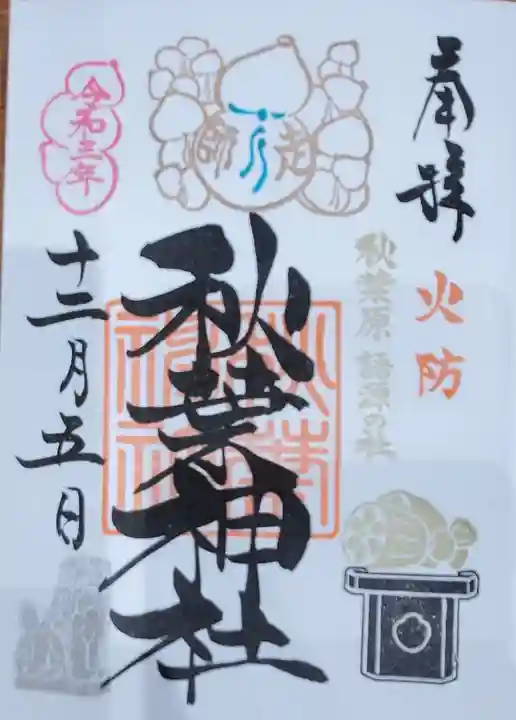 奉拝
火防
秋葉原語源の社
師走
秋葉神社
秋葉神社
令和三年
十二月五日